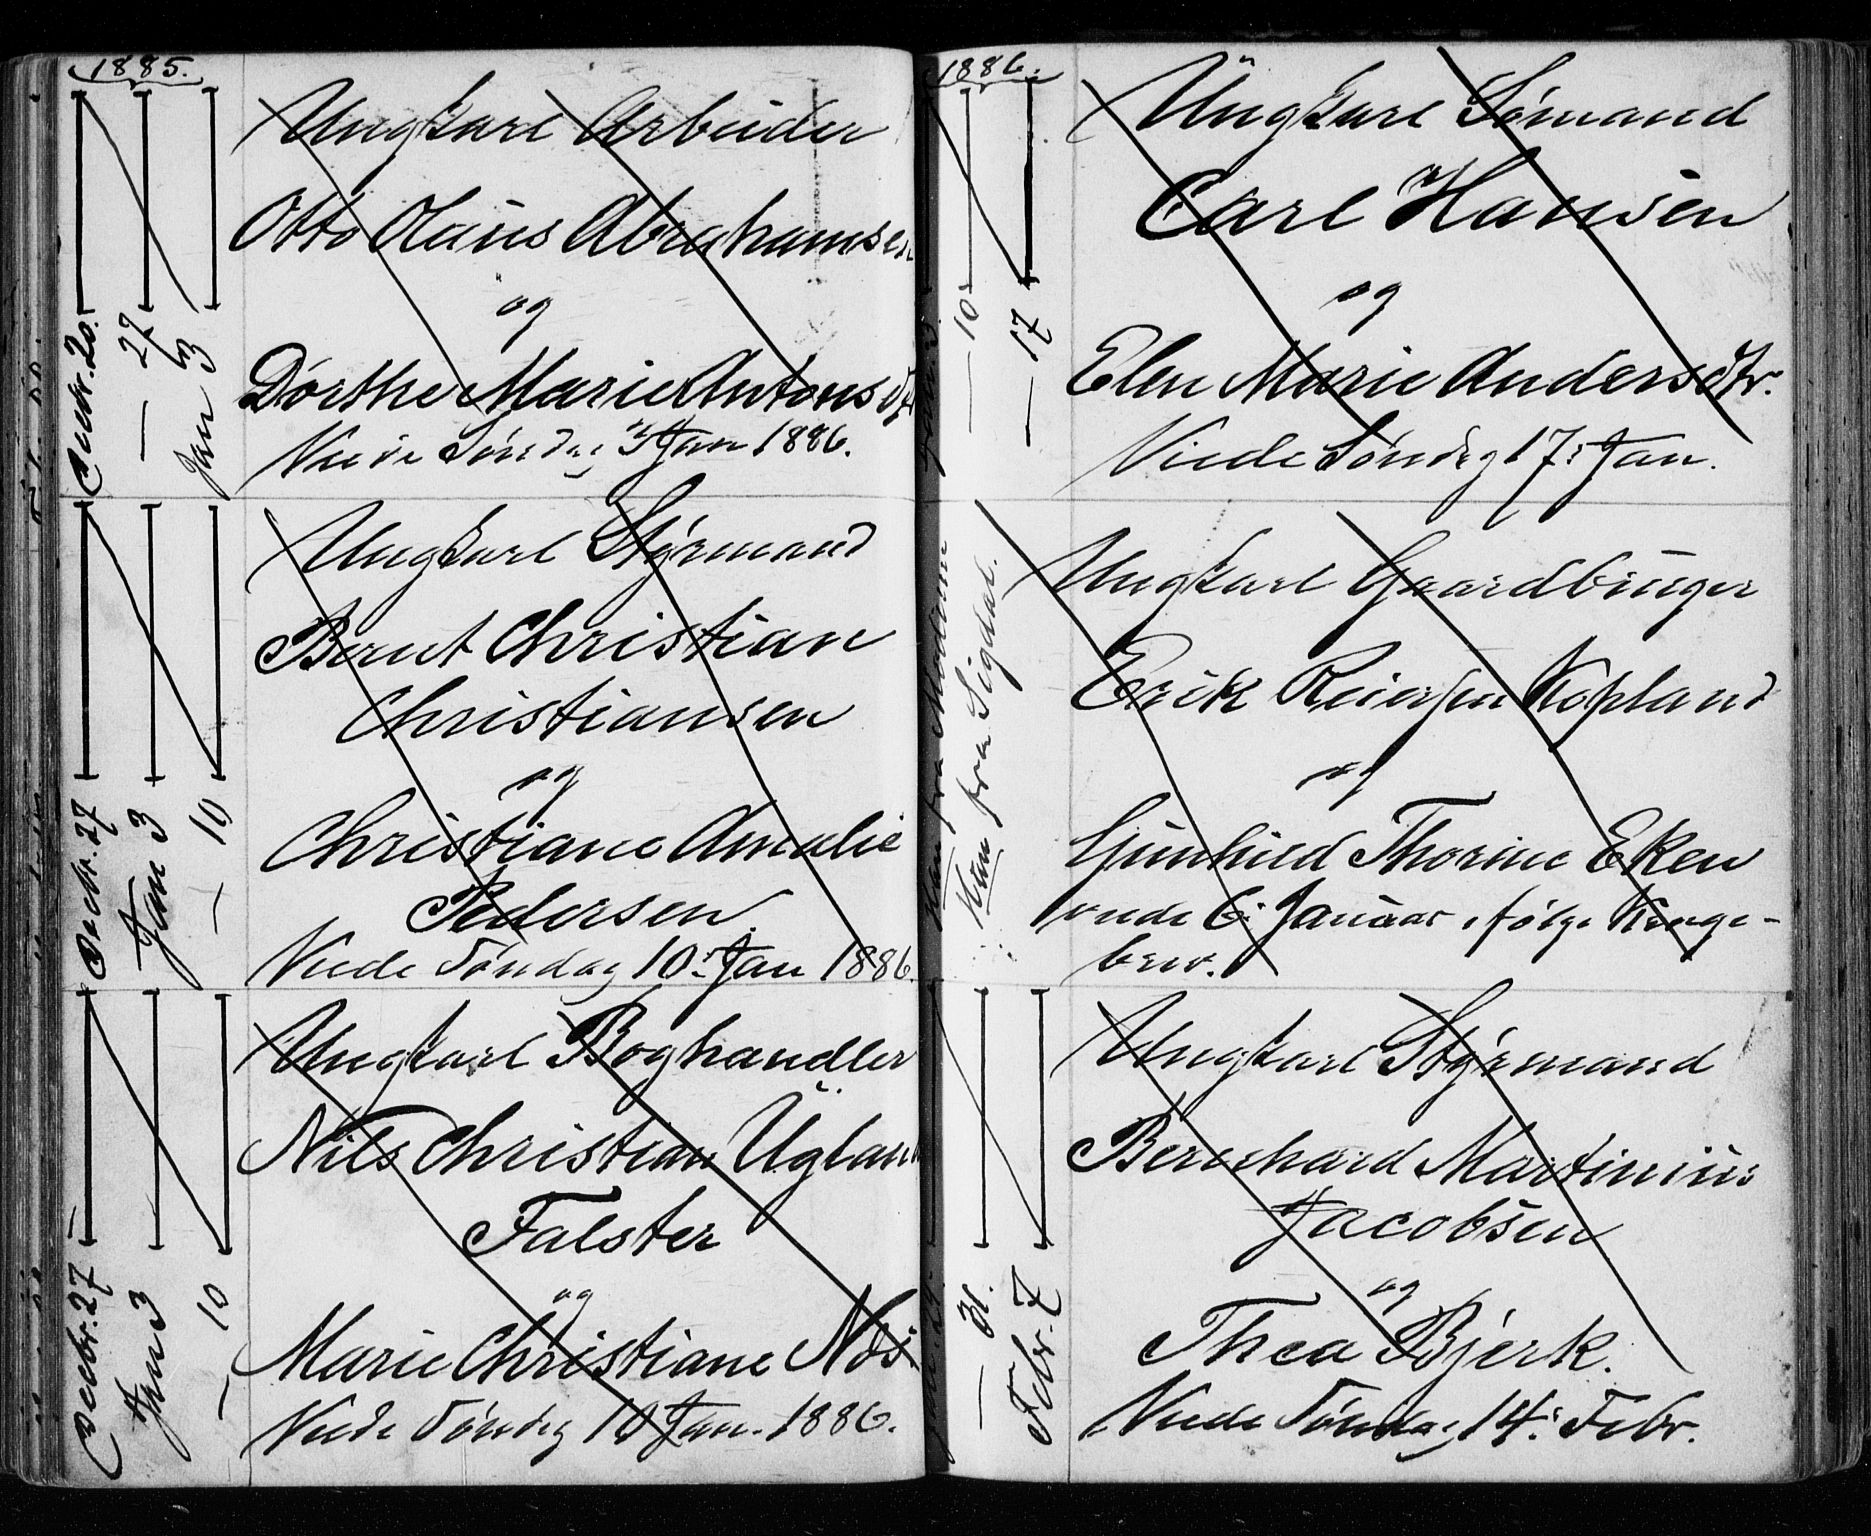 1885.
Decbr. 20.
— 27
Jan 3
Ungkarl Arbeider
Otto Olaus Abrahamsen
og
Dorthe Marie Antonsdtr
Viede Søndag 3 Jan 1886.
Decbr. 27
Jan 3
— 10
Ungkarl Styrmand
Bernt Christian
Christiansen
og
Christiane Amalie
Pedersen
Viede Søndag 10: Jan 1886
Decbr. 27
Jan 3
— 10
Ungkarl Boghandler
Nils Christian Ugland
Falster
og
Marie Christiane
Viede Søndag 10 Jan. 1886.
1886.
— 10
— 17
Ungkarl Sømand
Carl Hansen
og
Elen Marie Andersdtr.
Viede Søndag 17: Jan.
Han fra Modum
Hun fra Sigdal.
Ungkarl Gaardbruger
Erik Reiersen Kopland
og
Gunhild Thorine Eken
viede 6: Januar, følge Konge-
brev.
— 31.
Febr. 7
Ungkarl Styrmand
Bernhard Martinius
Jacobsen
og
Thea Bjerk.
Viede Søndag 14: Febr.